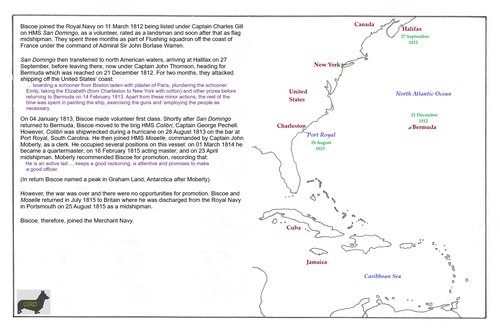 Biscoe joined the Royal Navy on 11 March 1812 being listed under Captain Charles Gill
on HMS San Domingo, as a volunteer, rated as a landsman and soon after that as flag
midshipman. They spent three months as part of Flushing squadron off the coast of
France under the command of Admiral Sir John Borlase Warren.
San Domingo then transferred to north American waters, arriving at Halifax on 27
September, before leaving there, now under Captain John Thomson, heading for
Bermuda which was reached on 21 December 1812. For two months, they attacked
shipping off the United States' coast:
... boarding a schooner from Boston laden with plaster of Paris, plundering the schooner
Emily, taking the Elizabeth (from Charleston to New York with cotton) and other prizes before
returning to Bermuda on 14 February 1813. Apart from these minor actions, the rest of the
time was spent in painting the ship, exercising the guns and 'employing the people as
necessary.
On 04 January 1813, Biscoe made volunteer first class. Shortly after San Domingo
returned to Bermuda, Biscoe moved to the brig HMS Colibri, Captain George Pechell.
However, Colibri was shipwrecked during a hurricane on 28 August 1813 on the bar at
Port Royal, South Carolina. He then joined HMS Moselle, commanded by Captain John
Moberly, as a clerk. He occupied several positions on this vessel: on 01 March 1814 he
became a quartermaster; on 16 February 1815 acting master; and on 23 April
midshipman. Moberly recommended Biscoe for promotion, recording that:
He is an active lad ... keeps a good reckoning, is attentive and promises to make
a good officer.
(In return Biscoe named a peak in Graham Land, Antarctica after Moberly).
However, the war was over and there were no opportunities for promotion. Biscoe and
Moselle returned in July 1815 to Britain where he was discharged from the Royal Navy
in Portsmouth on 25 August 1815 as a midshipman.
Biscoe, therefore, joined the Merchant Navy.
Canada
Halifax
27 September
1812
New York
United
States
North Atlantic Ocean
21 December
1812
Bermuda
Charleston
Port Royal
28 August
1813
Cuba
Jamaica
Caribbean Sea